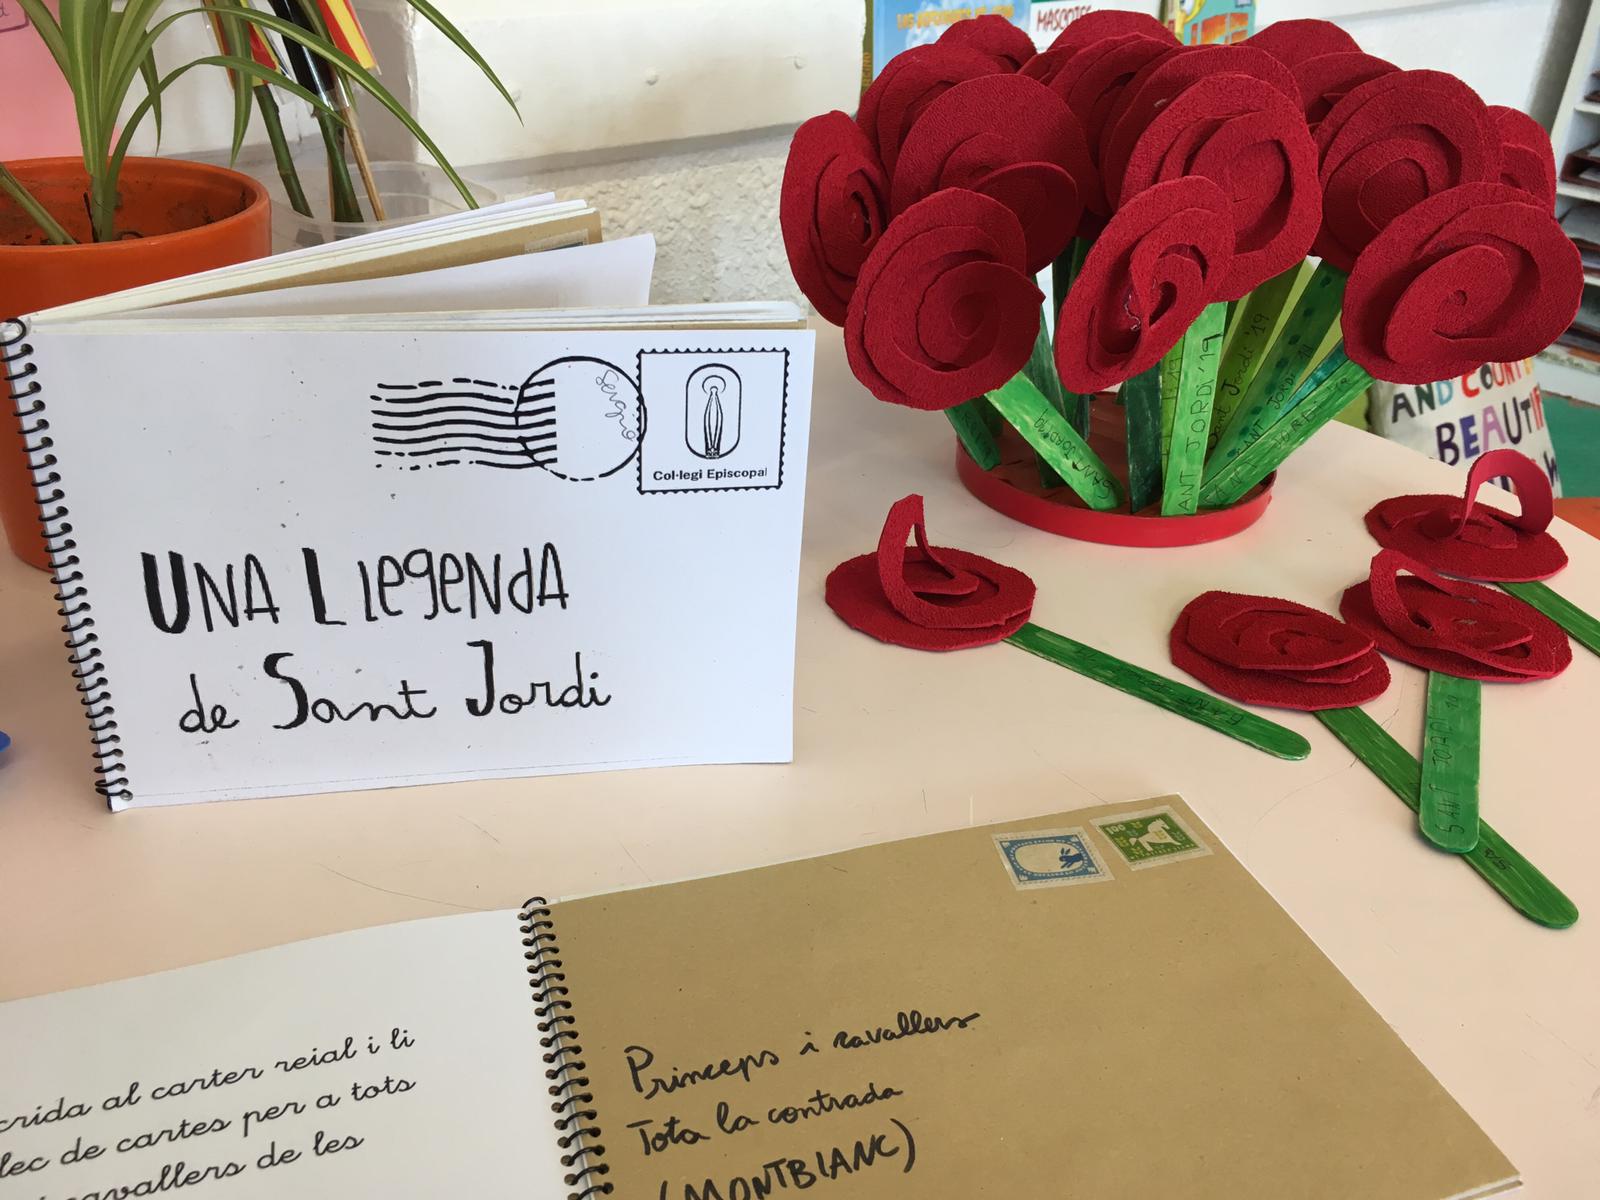 MASCOTES
Sergio
Col·legi Episcopal
UNA LLEGENDA
de Sant Jordi
SANT JORDI'19
Sant Jordi '19
SANT JORDI
SANT JORDI'19
SANT JORDI
AND COUNT
BEAUTIF
SANT JORDI 19
100
Princeps i cavallers
Tota la contrada
(MONTBLANC)
crida al carter reial i li
lec de cartes per a tots
cavallers de les